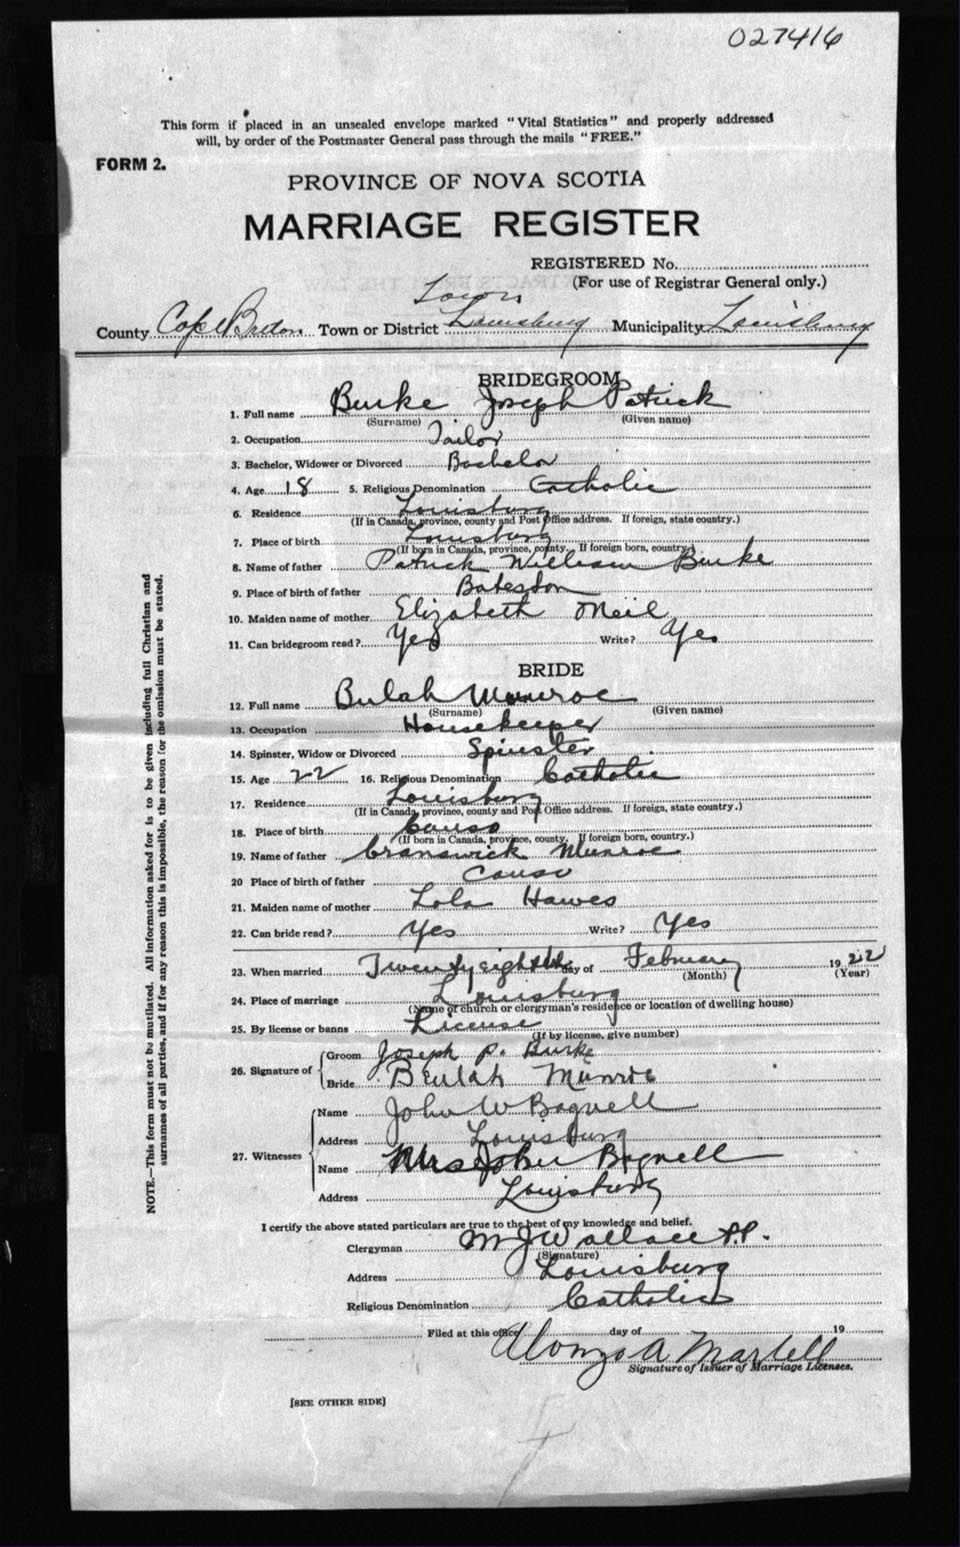 027416
This form if placed in an unsealed envelope marked "Vital Statistics" and properly addressed
will, by order of the Postmaster General pass through the mails "FREE."
FORM 2.
PROVINCE OF NOVA SCOTIA
MARRIAGE REGISTER
REGISTERED No.
(For use of Registrar General only.)
Town
County Cape Breton Town or District Louisburg Municipality Louisburg
BRIDEGROOM
1. Full name Burke Joseph Patrick
(Surname) (Given name)
2. Occupation Tailor
3. Bachelor, Widower or Divorced Bachelor
4. Age 18 5. Religious Denomination Catholic
6. Residence Louisburg
(If in Canada, province, county and Post Office address. If foreign, state country.)
7. Place of birth Louisburg
(If born in Canada, province, county. If foreign born, country.)
8. Name of father Patrick William Burke
9. Place of birth of father Bateston
10. Maiden name of mother Elizabeth Neil
11. Can bridegroom read? Yes Write? Yes
BRIDE
12. Full name Bulah Munroe
(Surname) (Given name)
13. Occupation Housekeeper
14. Spinster, Widow or Divorced Spinster
15. Age 22 16. Religious Denomination Catholic
17. Residence Louisburg
(If in Canada, province, county and Post Office address. If foreign, state country.)
18. Place of birth Canso
(If born in Canada, province, county, If foreign born, country.)
19. Name of father Cranswick Munroe
20 Place of birth of father Canso
21. Maiden name of mother Lola Hawes
22. Can bride read? Yes Write? Yes
23. When married Twenty eighth day of February 1922
(Month) (Year)
24. Place of marriage Louisburg
(Name of church or clergyman's residence or location of dwelling house)
25. By license or banns License
(If by license, give number)
26. Signature of Groom Joseph P. Burke
Bride Beulah Munroe
27. Witnesses Name John W Bagnell
Address Louisburg
Name Mrs John Bagnell
Address Louisburg
I certify the above stated particulars are true to the best of my knowledge and belief.
Clergyman M J Wallace P.P.
(Signature)
Address Louisburg
Religious Denomination Catholic
Filed at this office day of 19
Alonzo A Martell
Signature of Issuer of Marriage Licenses.
[SEE OTHER SIDE]
NOTE.—This form must not be mutilated. All information asked for is to be given including full Christian and
surnames of all parties, and if for any reason this is impossible, the reason for the omission must be stated.